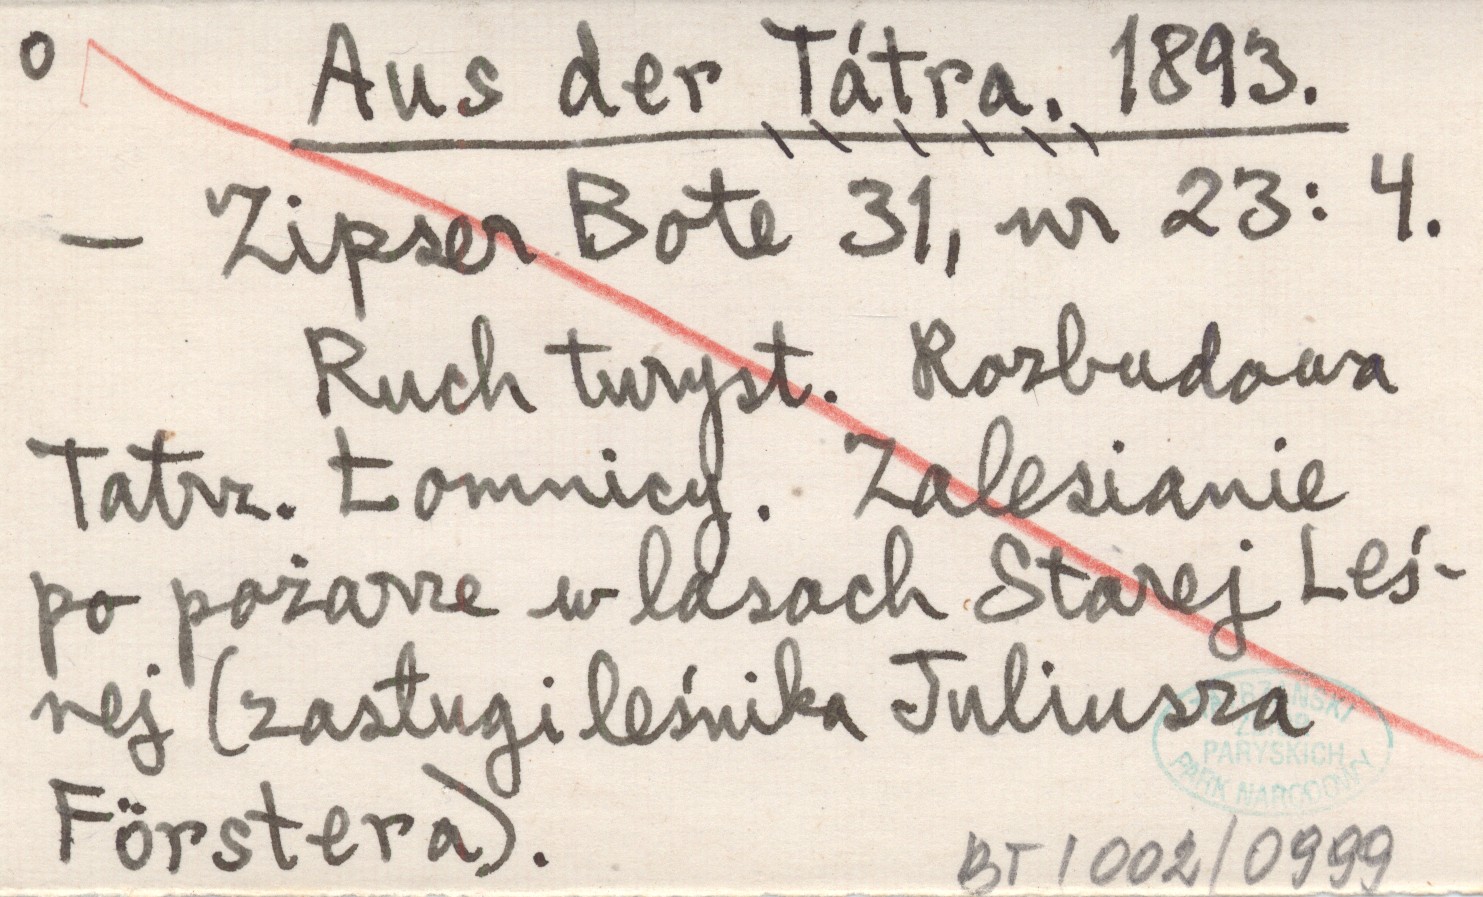 o Aus der Tátra. 1893.
– Zipser Bote 31, nr 23: 4.
Ruch turyst. Rozbudowa
Tatrz. Łomnicy. Zalesianie
po pożarze w lasach Starej Leś-
nej (zasługi leśnika Juliusza
Förstera).
TATRZAŃSKI
ZBIÓR
PARYSKICH
PARK NARODOWY
BT 1002/0999